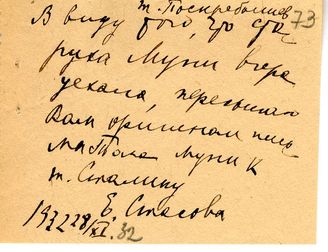 т. Поскребышев 73
В виду того, что ста
руха Муни вчера
уехала, пересылаю
Вам оригинал пись
ма Тола Муни к
т. Сталину
Е. Стасова
28/XI. 32